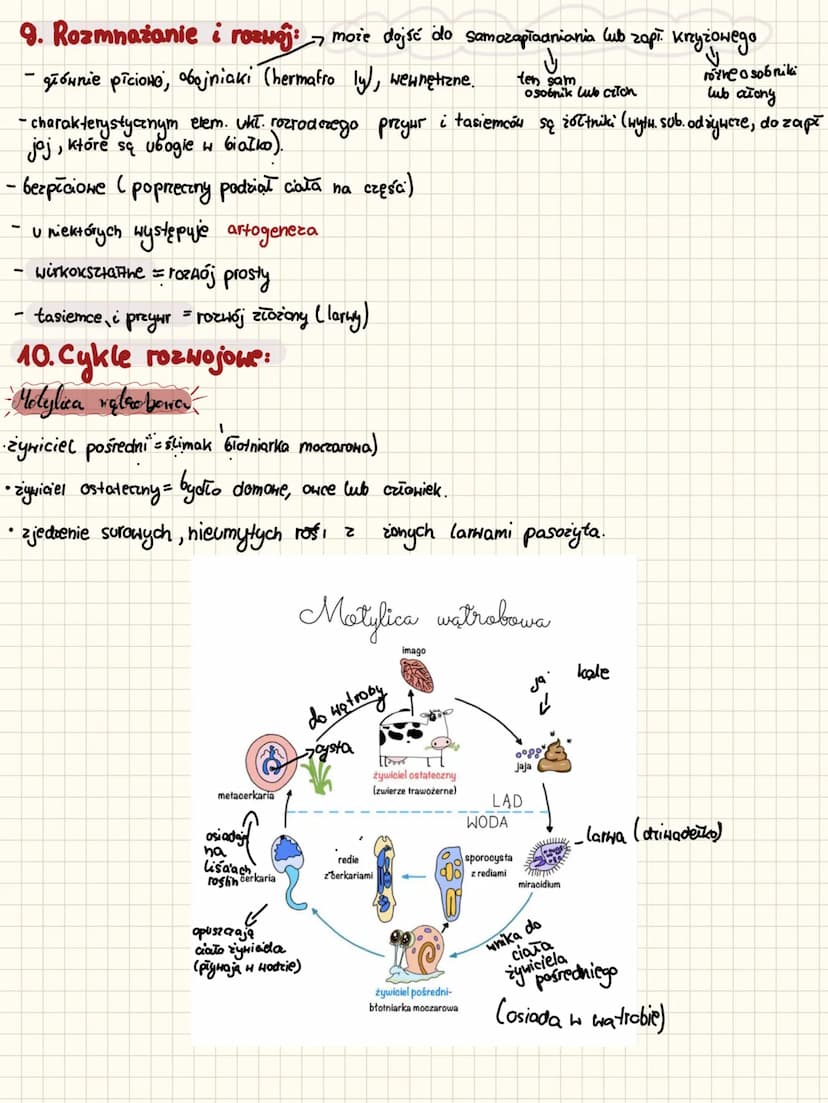 9. Rozmnażanie i rozwój: → może dojść do samozapładniania lub zapł. krzyżowego
- głównie płciowo, obojniaki (hermafro ly), wewnętrzne.
ten sam osobnik lub człon
różne osobniki lub człony
- charakterystycznym elem. ukł. rozrodczego przywr i tasiemców są żółtniki (wytw. sub. odżywcze, do zapł
jaj, które są ubogie w białko).
- bezpłciowe (poprzeczny podział ciała na części)
- u niektórych występuje artogeneza
- wirkokształtne = rozwój prosty
- tasiemce i przywr = rozwój złożony (larwy)
10. Cykle rozwojowe:
Motylica wątrobowa
· żywiciel pośredni = ślimak błotniarka moczarowa)
· żywiciel ostateczny = bydło domowe, owce lub człowiek.
· zjedzenie surowych, nieumytych rośl z żonych larwami pasożyta.
Motylica wątrobowa
imago
do wątroby
cysta
ja kale
jaja
żywiciel ostateczny
(zwierze trawożerne)
metacerkaria
LĄD
WODA
larwa (dziwadełko)
osiadają
na
liściach
roślin
cerkaria
redie
z cerkariami
sporocysta
z rediami
miracidium
opuszczają
ciało żywiciela
(pływają w wodzie)
wnika do
ciała
żywiciela
pośredniego
żywiciel pośredni-
błotniarka moczarowa
(osiada w wątrobie)